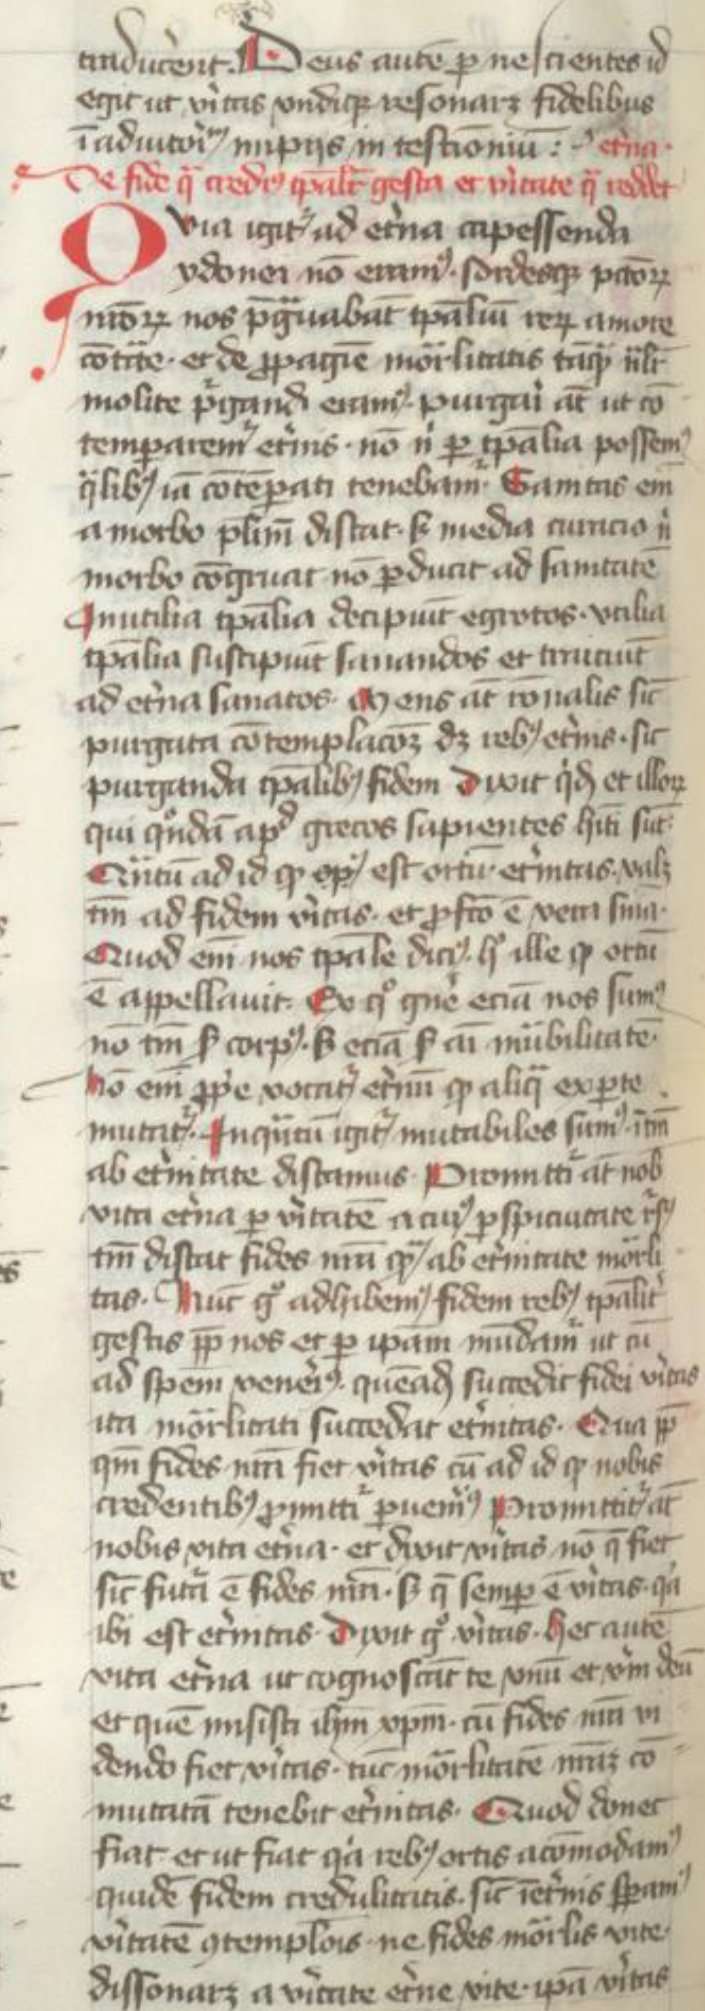 traducerent. Deus autē ꝑ nescientes id
egit ut vˀitas vndiqꝫ resonarꝫ fidelibus
ī adiutoriū īmpijs in testīoniū : etˀna.
De fide q̄ credit᷒ tp̄alit᷒ gesta et vˀitate q̄ reddet
Quia igit᷒ ad etˀna capessenda
ydonei nō eramꝰ. sordesqꝫ pctōꝝ
nr̄oꝝ nos p̄g̃uabāt tp̄aliū reꝝ amore
cōtͣcte. et de ꝓpagīe mōrlitatis tāqͣ nˀlr̄
molite p᷒gandi eramꝰ. purgari at̄ ut cō
temparem᷒ etˀnis. nō nˀ ꝑ tp̄alia possemꝰ
qͣlibꝰ iā cōtēperati tenebam᷒. Sanitas em̄
a morbo pl᷒im̄ distat. sꝫ media curacio nˀ
morbo cōgruat nō ꝑducit ad sanitatē
Inutilia tp̄alia decipiūt egrotos. vtilia
tp̄alia suscipiūt sanandos et traiciūt
ad etˀna sanatos. Mens at̄ rōnalis sic̄
purgata cōtemplac̄oꝫ dꝫ rebꝰ etˀnis. sic
purganda tp̄alibꝰ fidem. Dixit qͥdā et illoꝝ
qui qͦndā apᵈ grecos sapientes hīti sūt.
Qͣntū ad id qꝫ opꝰ est ortū etˀnitas. valꝫ
tm̄ ad fidem vˀitas. et ꝓfcō ē vera sn̄ia.
Quod em̄ nos tp̄ale dicimꝰ. hͦ ille qꝫ ortū
ē appellauit. Ex qͦ gn̄e eciā nos sumꝰ
nō tm̄ ẜ corpꝰ. sꝫ eciā ẜ ai͞ mu̅bilitatē.
Nō em̄ ꝓpͥe vocat᷒ etˀnū qꝫ aliqͣ ex ꝑte
mutat᷒. Inqͣntū igit᷒ mutabiles sumꝰ. ītm̄
ab etˀnitate distamus. Promittit᷒ at̄ nob̄
vita etˀna ꝑ vˀitatē a cuiꝰ ꝑspicuitate rˀsꝰ
tm̄ distat fides nr̄a qͣꝫ ab etˀnitate mōrli
tas. Nūc gͦ adhibemꝰ fidem rebꝰ tp̄alit᷒
gestis ꝓp̄ nos et ꝑ ip̄am mūdam᷒ ut cū
ad sp̄em venerimꝰ. quēadm̄ succedit fidei vˀitas
ita mōrlitati succedat etˀnitas. Qua ꝓp̄
qm̄ fides nr̄a fiet vˀitas cū ad id qꝫ nobis
credentibꝰ ꝓmittit᷒ ꝑuenˀimꝰ Promittit᷒ at̄
nobis vita etˀna. et dixit vˀitas nō q̄ fiet
sic̄ futͣ ē fides nr̄a. sꝫ q̄ semꝑ ē vˀitas. qͥa
ibi est etˀnitas. Dixit gͦ vˀitas. Hec autē
vita etˀna ut cognoscāt te vnū et vˀm deū
et quē misisti ihm̄ xp̄m. cū fides nr̄a vi
dendo fiet vˀitas. tūc mōrlitatē nr̄aꝫ cō
mutatā tenebit etˀnitas. Quod donec
fiat et ut fiat qͥa rebꝰ ortis acōmodamꝰ
quidē fidem credulitatis. sic̄ ī etˀnis sꝑamꝰ
vˀitatē ꝯtemplōis. ne fides mōrlis vite.
dissonarꝫ a vˀitate etˀne vite. ip̄a vˀitas